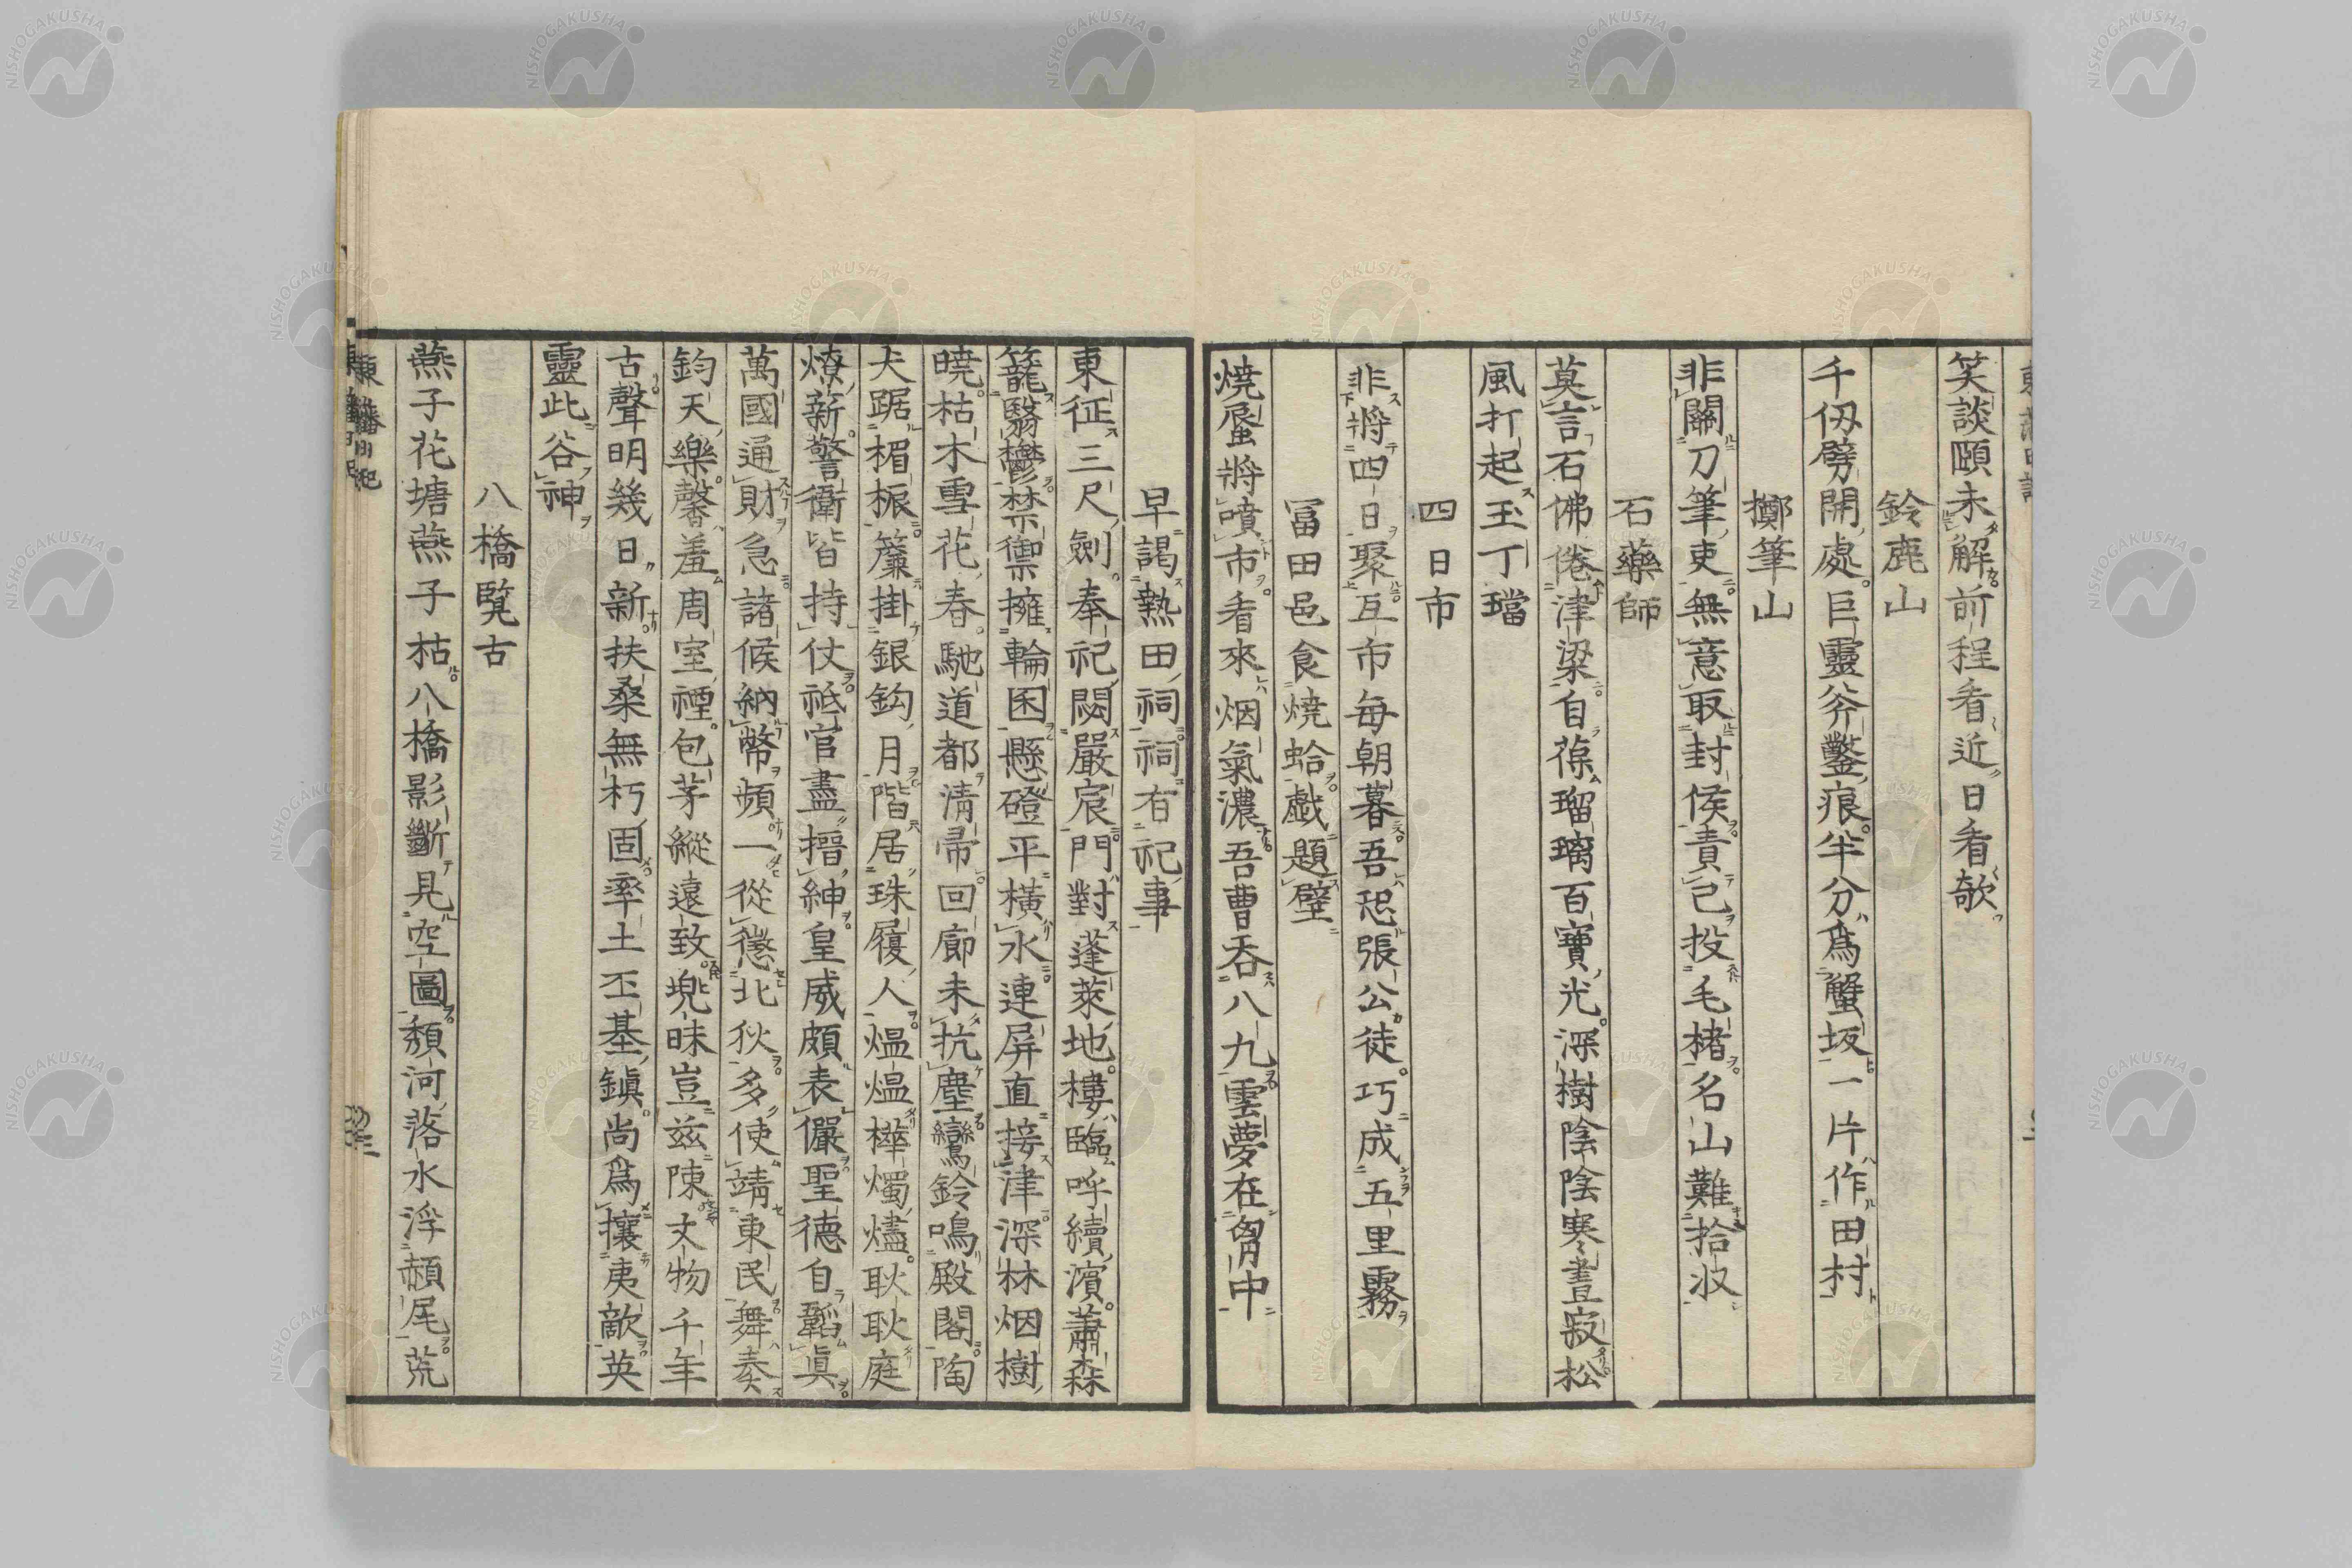 笑談頤未解前程看近日看欹
鈴鹿山
千仭劈開處巨靈斧鑿痕半分爲蟹坂一片作田村
擲筆山
非關刀筆吏無意取封侯責己投毛楮名山難拾収
石藥師
莫言石佛倦津梁自葆瑠璃百寶光深樹陰陰寒晝寂松
風打起玉丁璫
四日市
非將四日聚互市每朝暮吾恐張公徒巧成五里霧
冨田邑食燒蛤戱題壁
燒蜃將噴市看來烟氣濃吾曹呑八九雲夢在胷中
早謁熱田祠祠有祀事
東征三尺劍奉祀閟嚴宸門對蓬萊地樓臨呼續濱蕭森
籠翳鬱禁禦擁輪囷懸磴平橫水連屏直接津深林烟樹
曉枯木雪花春馳道都淸帚回廊未抗塵鸞鈴鳴殿閣陶
犬踞楣桭簾掛銀鈎月階居珠履人熅熅樺燭燼耿耿庭
燎新警衞皆持仗祗官盡搢紳皇威頗表儼聖德自韜眞
萬國通財急諸候納幣頻一從懲北狄多使靖東民舞奏
鈞天樂馨羞周室禋包茅縱遠致兠昧豈茲陳文物千年
古聲明幾日新扶桑無朽固率土丕基鎭尚爲攘夷敵英
靈此谷神
八橋覽古
燕子花塘燕子枯八橋影斷見空圖頽河落水浮赬尾荒